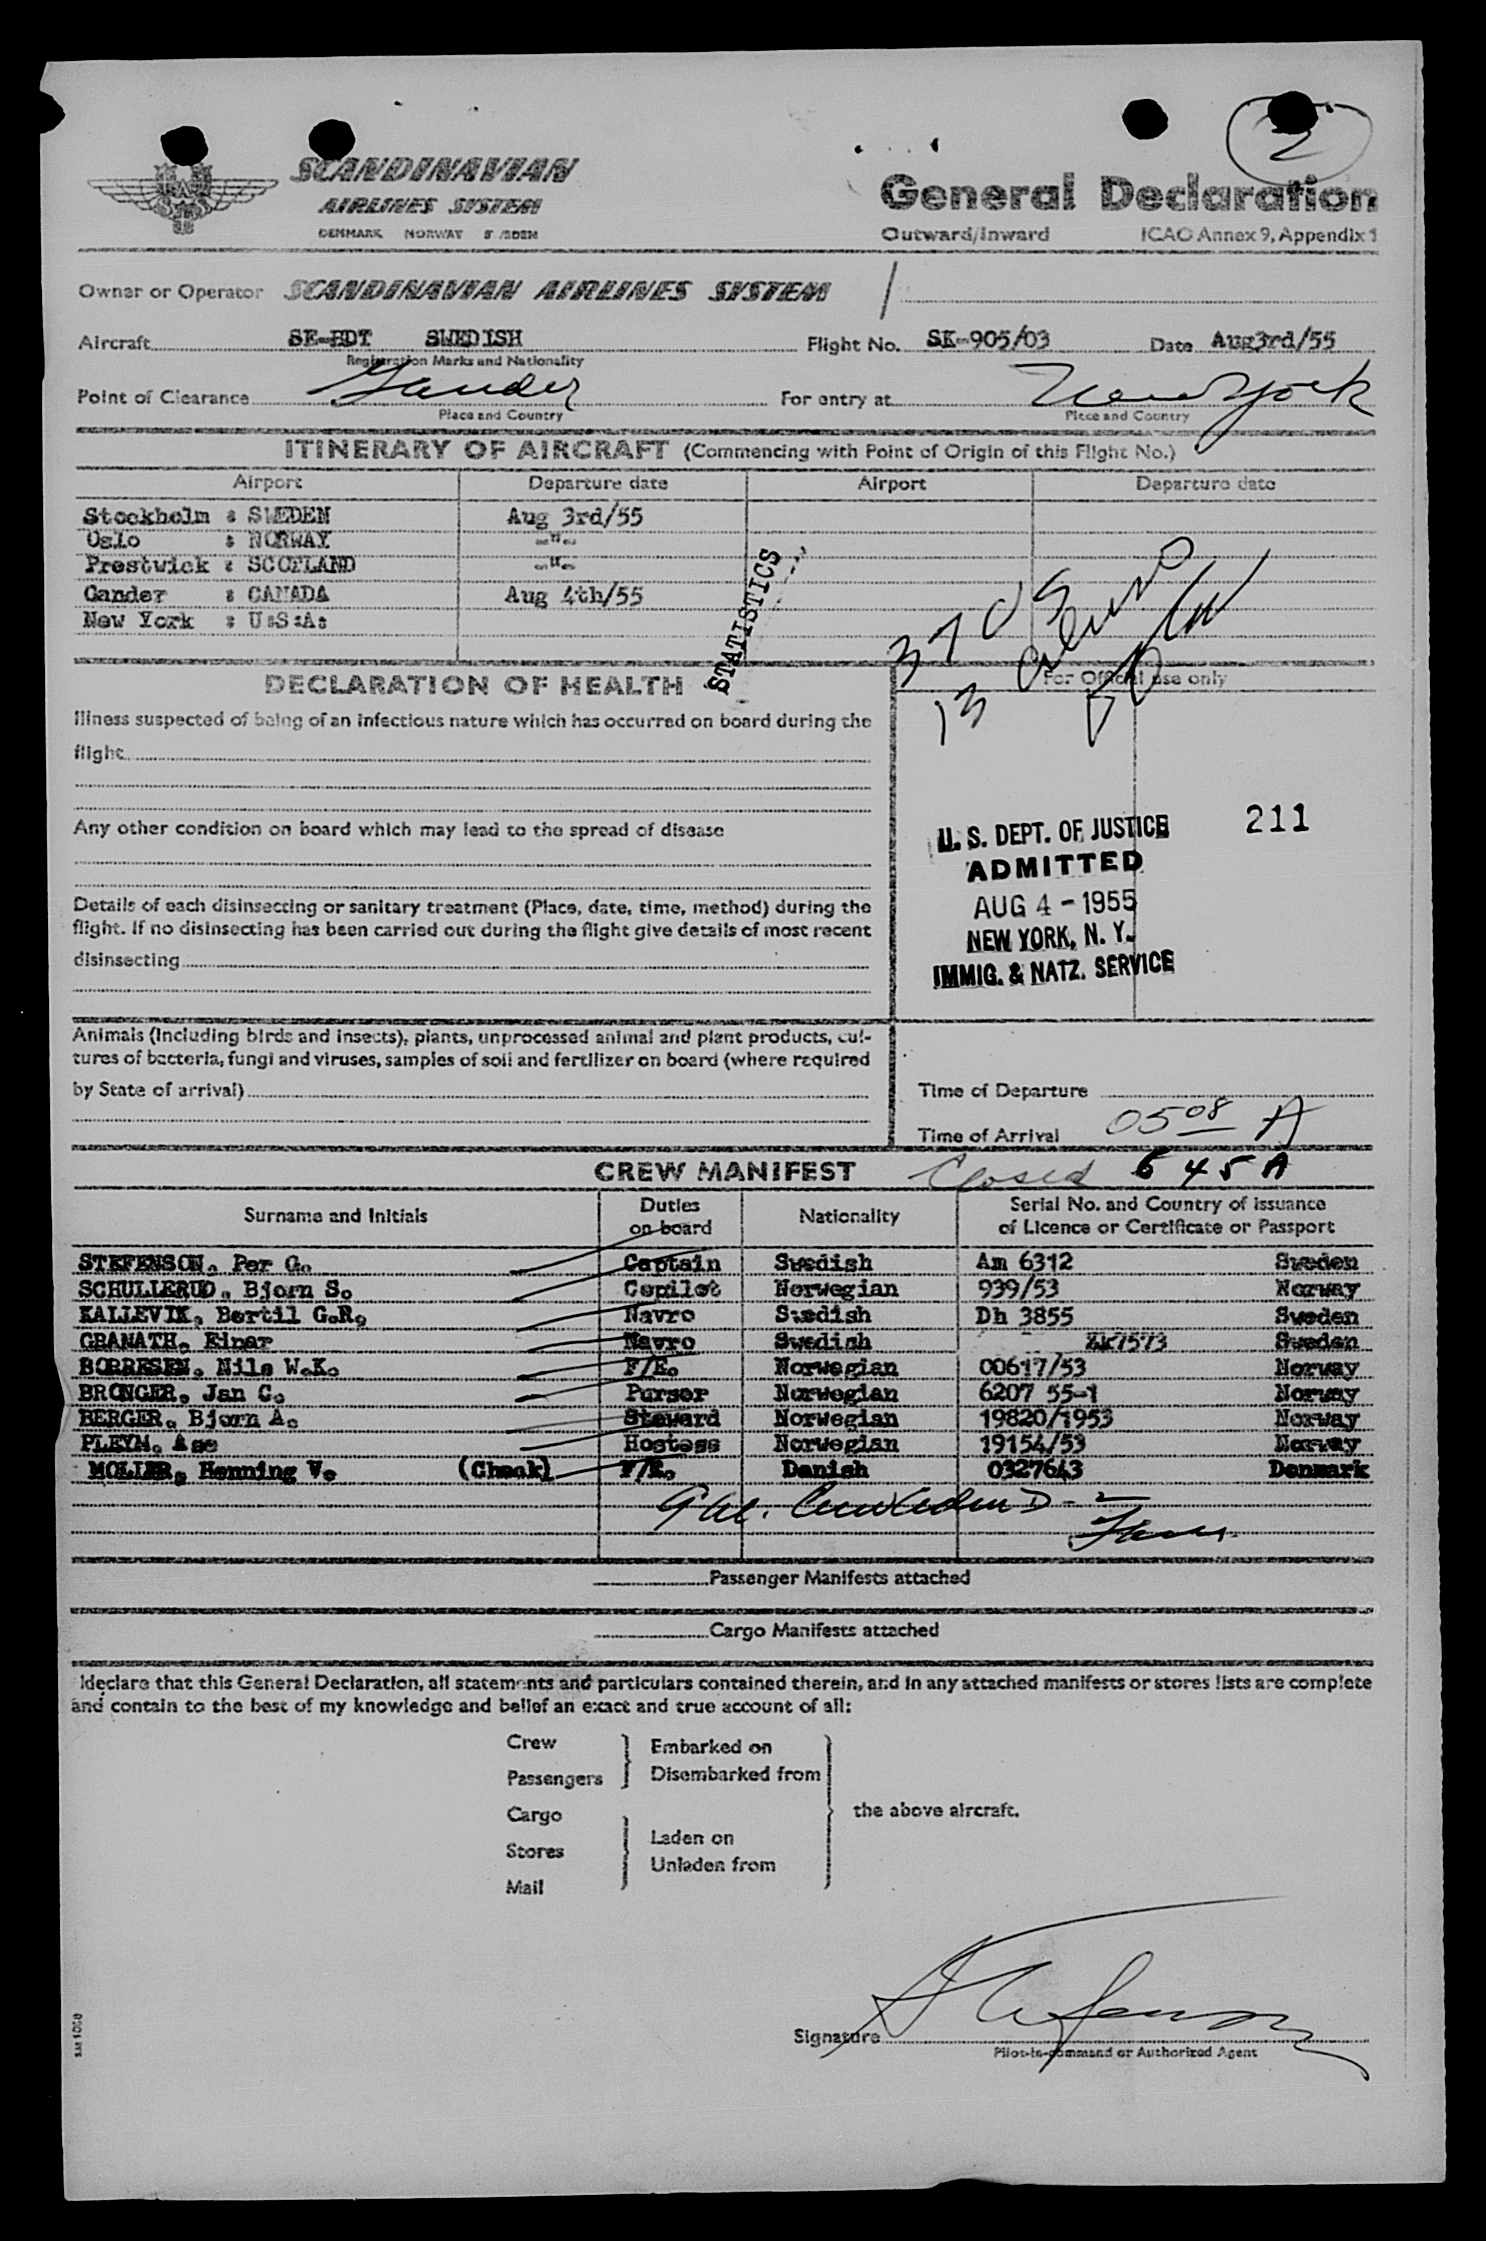 2
SCANDINAVIAN
AIRLINES SYSTEM
DENMARK NORWAY SWEDEN
General Declaration
Outward/Inward ICAO Annex 9, Appendix 1
Owner or Operator SCANDINAVIAN AIRLINES SYSTEM
Aircraft SE-BDT SWEDISH Flight No. SK-905/03 Date Aug3rd/55
Registration Marks and Nationality
Point of Clearance Gander For entry at New York
Place and Country Place and Country
ITINERARY OF AIRCRAFT (Commencing with Point of Origin of this Flight No.)
Airport Departure date Airport Departure date
Stockholm : SWEDEN Aug 3rd/55
Oslo : NORWAY -"-
Prestwick : SCOTLAND -"-
Gander : CANADA Aug 4th/55
New York : U:S:A:
STATISTICS
3705
13
DECLARATION OF HEALTH
For Official use only
Illness suspected of being of an infectious nature which has occurred on board during the
flight
Any other condition on board which may lead to the spread of disease
U. S. DEPT. OF JUSTICE 211
ADMITTED
AUG 4 - 1955
NEW YORK, N. Y.
IMMIG. & NATZ. SERVICE
Details of each disinsecting or sanitary treatment (Place, date, time, method) during the
flight. If no disinsecting has been carried out during the flight give details of most recent
disinsecting
Animals (including birds and insects), plants, unprocessed animal and plant products, cul-
tures of bacteria, fungi and viruses, samples of soil and fertilizer on board (where required
by State of arrival)
Time of Departure
Time of Arrival 0508 A
CREW MANIFEST Closed 545A
Surname and Initials Duties on board Nationality Serial No. and Country of issuance of Licence or Certificate or Passport
STEFENSON. Per G. Captain Swedish Am 6312 Sweden
SCHULLERUD. Bjorn S. Copilot Norwegian 939/53 Norway
KALLEVIK. Bertil G.R. Navro Swedish Dh 3855 Sweden
GRANATH. Einar Navro Swedish Zk7573 Sweden
BORRESEN. Nils W.K. F/E. Norwegian 00617/53 Norway
BRONGER. Jan C. Purser Norwegian 6207 55-1 Norway
BERGER. Bjorn A. Steward Norwegian 19820/1953 Norway
PLEYM. Ase Hostess Norwegian 19154/53 Norway
MOLLER, Henning V. (Check) F/E. Danish 0327643 Denmark
Passenger Manifests attached
Cargo Manifests attached
I declare that this General Declaration, all statements and particulars contained therein, and in any attached manifests or stores lists are complete
and contain to the best of my knowledge and belief an exact and true account of all:
Crew
Passengers
Embarked on
Disembarked from
Cargo
Stores
Mail
Laden on
Unladen from
the above aircraft.
Signature
Pilot-in-command or Authorized Agent